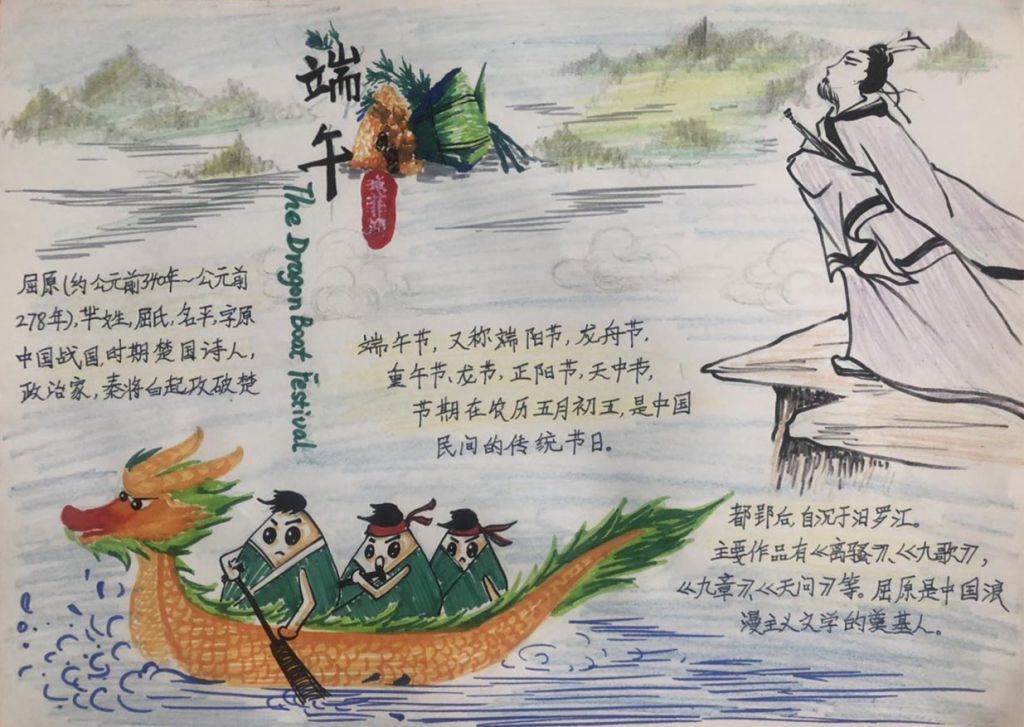 端午
The Dragon Boat Festival
屈原(约公元前340年~公元前
278年),芈姓,屈氏,名平,字原
中国战国时期楚国诗人,
政治家,秦将白起攻破楚
端午节,又称端阳节,龙舟节,
重午节,龙节,正阳节,天中节,
节期在农历五月初五,是中国
民间的传统节日。
都郢后,自沉于汨罗江。
主要作品有《离骚》、《九歌》,
《九章》、《天问》等。屈原是中国浪
漫主义文学的奠基人。